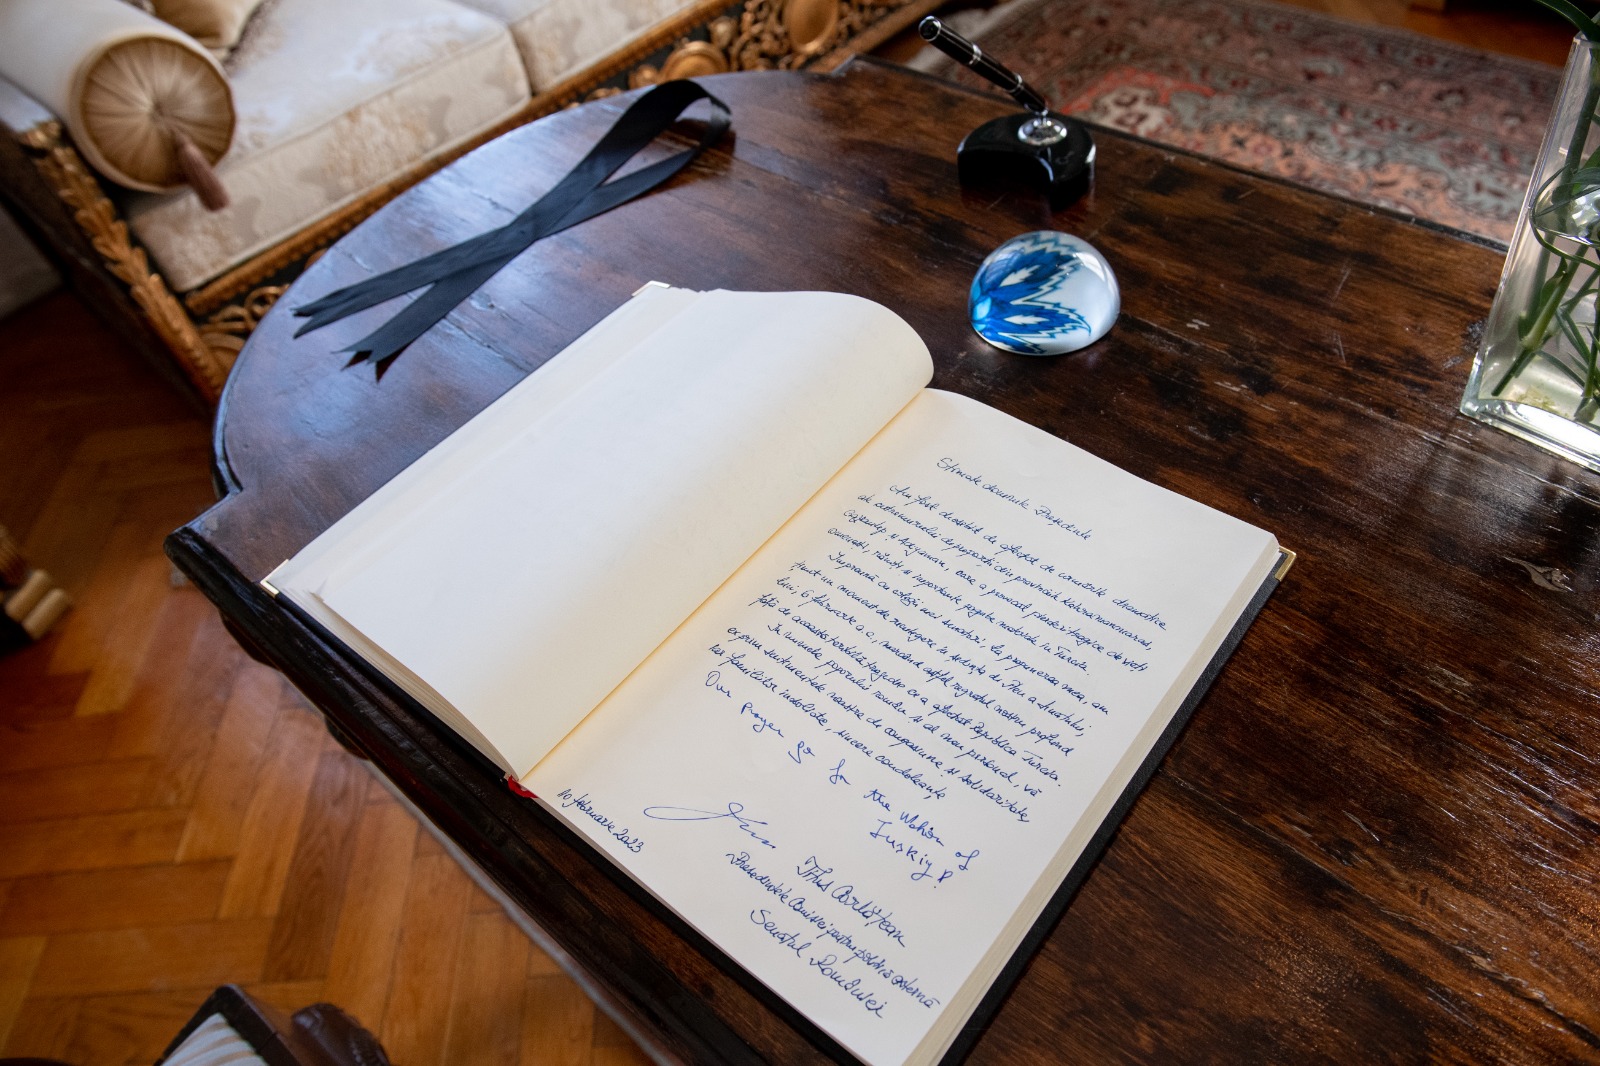 Stimate domnule Președinte
Am fost deosebit de afectat de consecințele dramatice
ale cutremurului de pământ din provinciile Kahramanmaraș,
Gaziantep și Adıyaman, care a provocat pierderi tragice de vieți
omenești, răniți și importante pagube materiale în Turcia.
Împreună cu colegii mei senatori, la propunerea mea, am
ținut un moment de reculegere în ședința de Plen a Senatului,
luni, 6 februarie a.c., marcând astfel regretul nostru profund
față de această teribilă tragedie ce a afectat Republica Turcia.
În numele poporului român și al meu personal, vă
exprim sentimentele noastre de compasiune și solidaritate,
iar familiilor îndoliate, sincere condoleanțe
Our prayer go for the Nation of
Turkiye!
10 februarie 2023
Titus Corlățean
Președintele Comisiei pentru politică externă
Senatul României